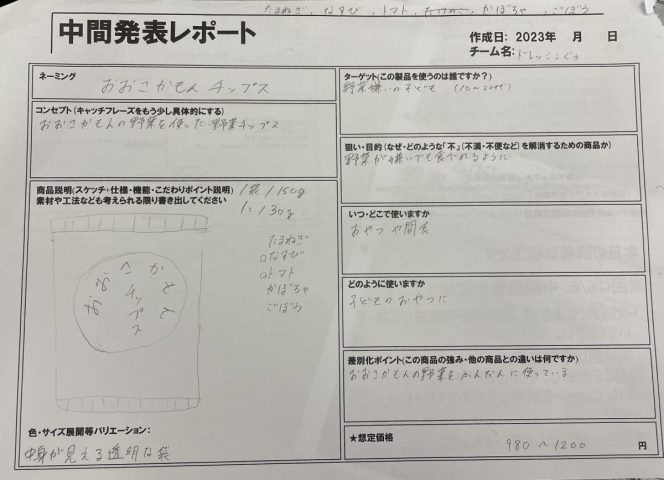 たまねぎ, なすび, トマト, たけのこ, かぼちゃ, ごぼう
中間発表レポート
作成日: 2023年　月　日
チーム名:
ネーミング
おおさかもん チップス
コンセプト(キャッチフレーズをもう少し具体的にする)
おおさかもんの野菜を使った野菜チップス
商品説明(スケッチ+仕様・機能・こだわりポイント説明)
素材や工法なども考えられる限り書き出してください
1袋/150g
/30g
たまねぎ
○なすび
○トマト
かぼちゃ
ごぼう
おおさかもん
チップス
色・サイズ展開等バリエーション:
中身が見える透明な袋
ターゲット(この製品を使うのは誰ですか?)
野菜嫌いの子ども (10〜20代)
狙い・目的(なぜ・どのような「不」(不満・不便など)を解消するための商品か)
野菜が嫌いでも食べれるように
いつ・どこで使いますか
おやつや間食
どのように使いますか
子どものおやつに
差別化ポイント(この商品の強み・他の商品との違いは何ですか)
おおさかもんの野菜をふんだんに使っている.
★想定価格
980 〜 1200 円